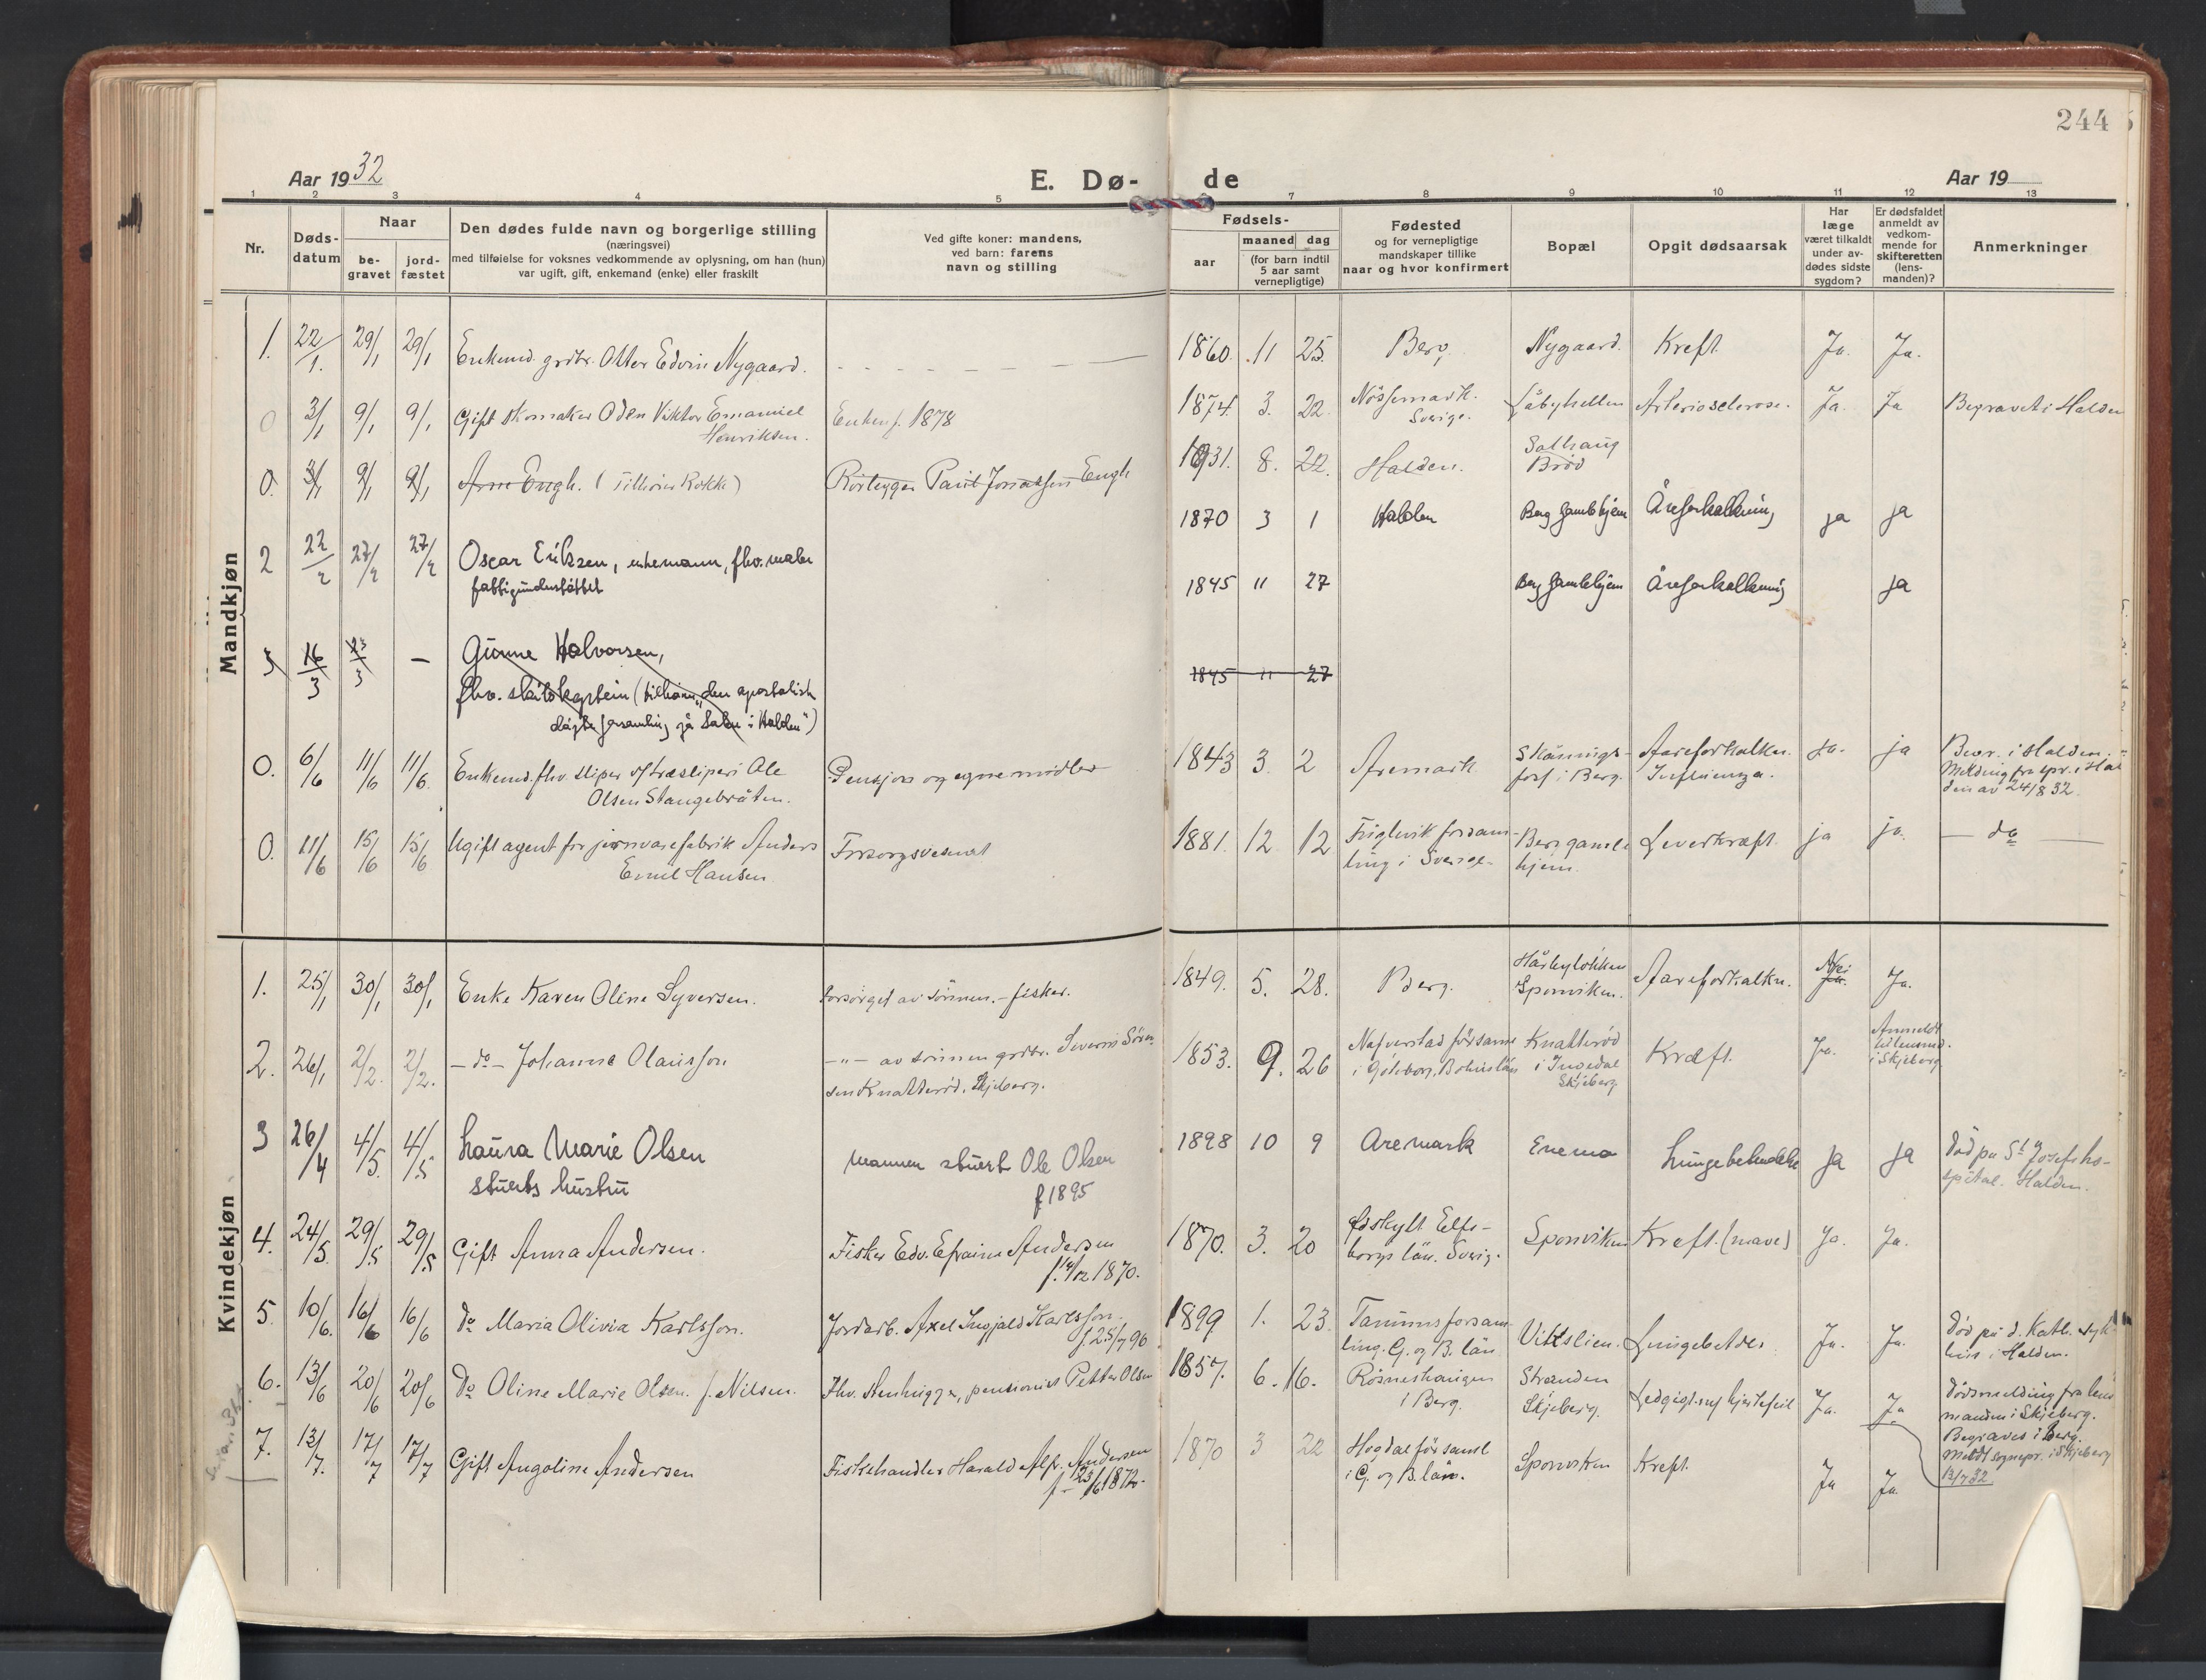 244
Aar 1932
E. Dø-
de
Aar 19
1 2 3 4 5 7 8 9 10 11 12 13
Nr.
Døds-
datum
Naar
be-
gravet
jord-
fæstet
Den dødes fulde navn og borgerlige stilling
(næringsvei)
med tilføielse for voksnes vedkommende av oplysning, om han (hun)
var ugift, gift, enkemand (enke) eller fraskilt
Ved gifte koner: mandens,
ved barn: farens
navn og stilling
Fødsels-
aar
maaned dag
(for barn indtil
5 aar samt
vernepligtige)
Fødested
og for vernepligtige
mandskaper tillike
naar og hvor konfirmert
Bopæl
Opgit dødsaarsak
Har
læge
været tilkaldt
under av-
dødes sidste
sygdom?
Er dødsfaldet
anmeldt av
vedkom-
mende for
skifteretten
(lens-
manden)?
Anmerkninger
Mandkjøn
1. 22/1. 29/1 29/1 Enkemd. grdbr. Otter Edvin Nygaard. 1860. 11 25. Berg Nygaard. Kreft. Ja. Ja.
0 3/1 9/1 9/1 Gift skomaker Oden Viktor Emanuel
Henriksen.
Enken f. 1878 1874. 3. 22. Nössemark.
Sverige.
Låbyhellen Arteriosclerose. Ja. Ja Begravet i Halden
0. 3/1 9/1 9/1 Arne Engh. (Tilhører Rokke) Rørlegger Paul Jonassen Engh 1931. 8. 22. Halden.
Solhaug
Brød
2 22/2 27/2 27/2 Oscar Eriksen, enkemann, fhv. maler
fattigunderstøttet
1870 3 1 Halden Berg Gamlehjem Åreforkalkning ja ja
1845 11 27 Berg Gamlehjem Åreforkalkning ja
3 16/3 23/3 — Gunne Halvorsen,
fhv. skibskaptein (tilhører „den apostolisk
døpte forsamling på Salen i Halden")
1845 11 27
0. 6/6 11/6 11/6 Enkemd. fhv. sliper v/træsliperi Ole
Olsen Stangebråten.
Pensjon og egne midler 1843 3 2 Aremark Skånings-
foss i Berg. Aareforkalkn.
Influenza. ja. ja Begr. i Halden.
Melding fra spr. i Hal
den av 24/8 32.
0. 11/6 15/6 15/6 Ugift agent for jernvarefabrik Anders
Emil Hansen
Forsorgsvesenet 1881. 12 12 forsam-
ling i Sverige- Berg gamle
hjem. Leverkræft. ja ja. — do —
Kvindekjøn
1. 25/1 30/1 30/1 Enke Karen Oline Syversen. forsørget av sönnen. - fisker. 1849. 5. 28. Berg. Hårbyløkken
Sponviken. Aareforkalkn. Nei
Ja. Ja.
2. 26/1 2/2. 2/2. — do — Johanne Olausson — " — av sönnen grdbr. Severin Sören
sen Knatterød, Skjeberg. 1853. 9. 26 Nafverstad församl
i Göteborg. Bohuslän Knatterød
i Ingedal
Skjeberg Kræft. Ja. Anmeldt
til lensmd.
i Skjeberg.
3 26/4 4/5. 4/5 Laura Marie Olsen
stuerts hustru
Mannen stuert Ole Olsen
f 1895
1898 10 9 Aremark Enemo Lungebetendelse ja ja Död på St Josefsho-
spital. Halden.
4. 24/5. 29/5 29/5 Gift Anna Andersen. Fisker Edv. Efraim Andersen
f. 14/12 1870.
1870. 3. 20 Elfs-
borgs län. Sverig. Sponviken Kreft. (mave) Ja. Ja.
5. 10/6. 16/6 16/6 do Maria Olivia Karlsson. Jordarb. Axel Ingjald Karlsson.
f. 25/7 96
1899 1. 23 Tanums forsam
ling. G. og B. län Vittslien. Lungebetdes. Ja. Ja. Död på d. Kath. syk
hus i Halden.
6. 13/6 20/6 20/6 do Oline Marie Olsen. f. Nilsen. Fhv. stenhugger, pensionist Petter Olsen 1857. 6. 16. Rösneshaugen
i Berg. Stranden
Skjeberg. Ledgigt. m/ hjertefeil Ja. Ja Dödsmelding fra lens
manden i Skjeberg.
Begraves i Berg.
Meldt sognepr. i Skjeberg
13/7 32
7. 13/7. 17/7 17/7 Gift Angoline Andersen Fiskehandler Harald Alfr. Andersen
f — 23/6 1872.
1870 3 22 Hogdal församl
i G. og B. län. Sponviken Kreft. Ja Ja.